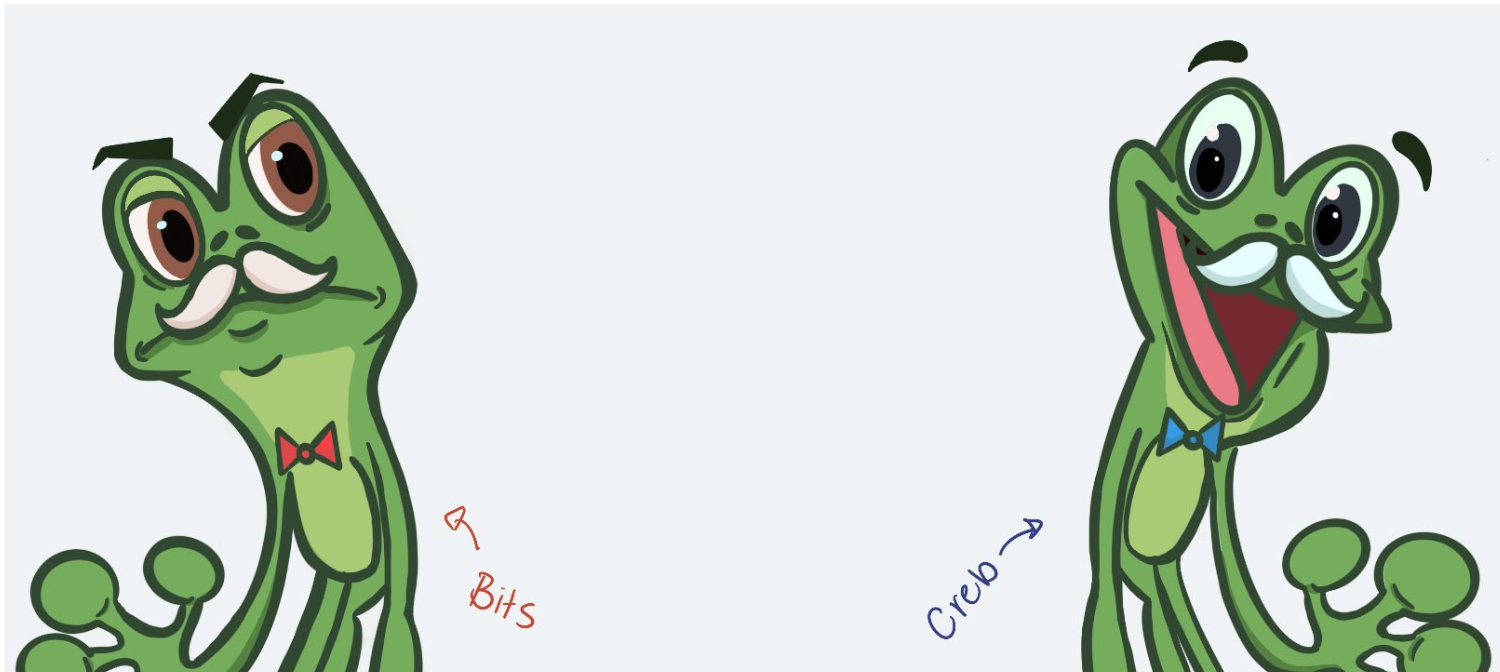 Bits
Creb